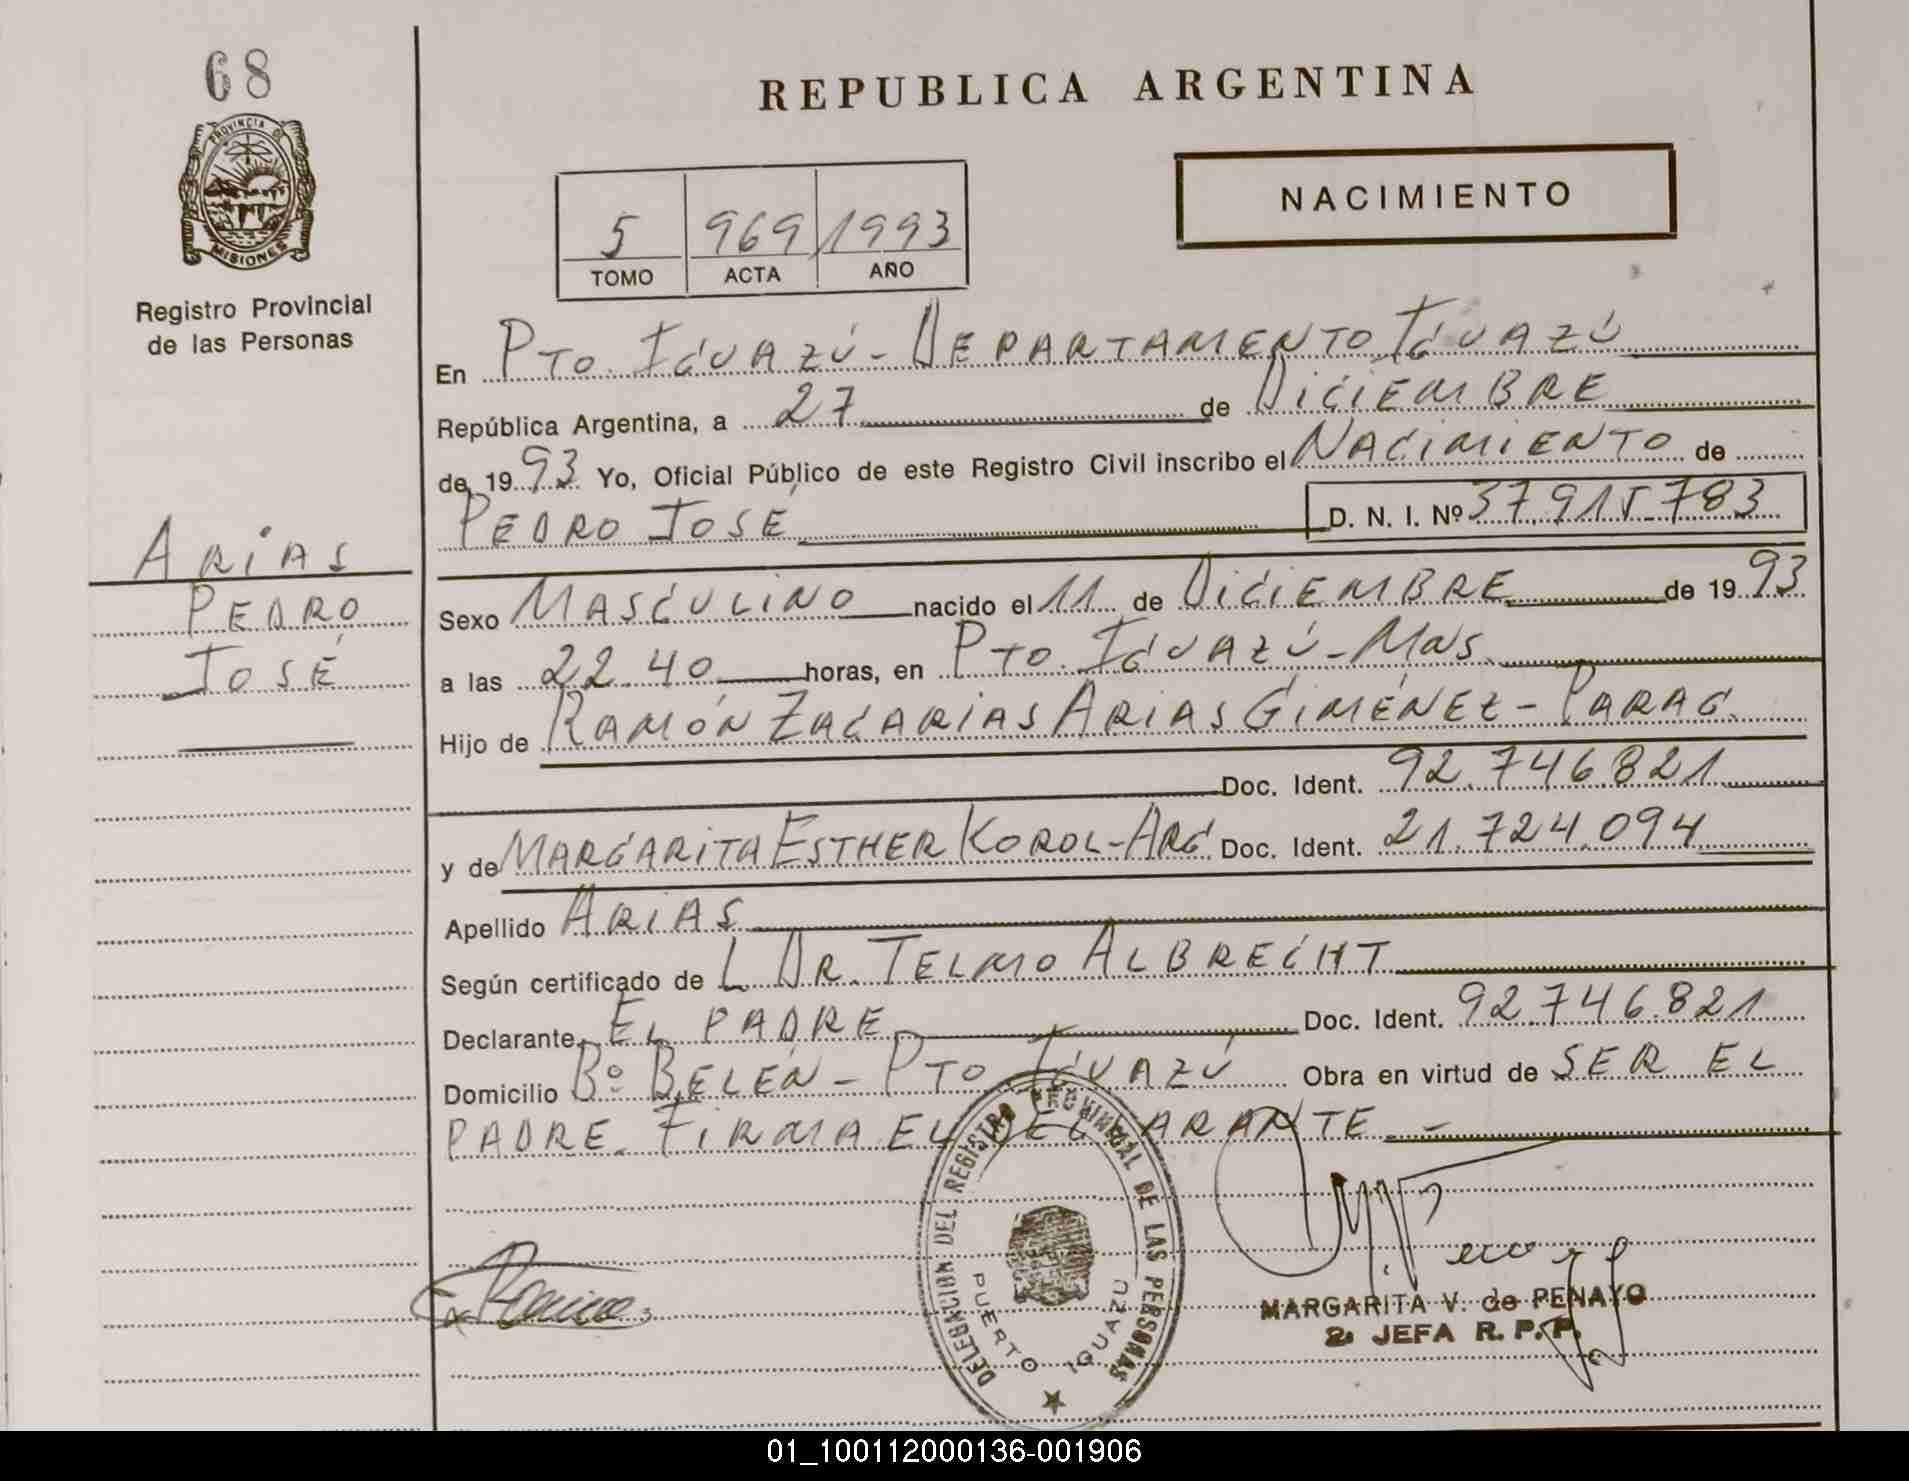 68
PROVINCIA DE
MISIONES
Registro Provincial
de las Personas
ARIAS
PEDRO
JOSÉ
REPUBLICA ARGENTINA
NACIMIENTO
5 969 1993
TOMO ACTA AÑO
En PTO. IGUAZÚ - DEPARTAMENTO IGUAZÚ
República Argentina, a 27 de DICIEMBRE
de 1993 Yo, Oficial Público de este Registro Civil inscribo el NACIMIENTO de
PEDRO JOSÉ D. N. I. Nº 37.915.783
Sexo MASCULINO nacido el 11 de DICIEMBRE de 1993
a las 22.40 horas, en PTO. IGUAZÚ - MNS.
Hijo de RAMÓN ZACARIAS ARIAS GIMÉNEZ - PARAG.
Doc. Ident. 92.746.821
y de MARGARITA ESTHER KOROL - ARG. Doc. Ident. 21.724.094
Apellido ARIAS
Según certificado de L DR. TELMO ALBRECHT
Declarante EL PADRE Doc. Ident. 92.746.821
Domicilio Bº BELÉN - PTO IGUAZÚ Obra en virtud de SER EL
PADRE. FIRMA EL DECLARANTE. -
DELEGACION DEL REGISTRO PROVINCIAL DE LAS PERSONAS
PUERTO IGUAZU
MARGARITA V. de PENAYO
2ª JEFA R. P. P.
01_100112000136-001906